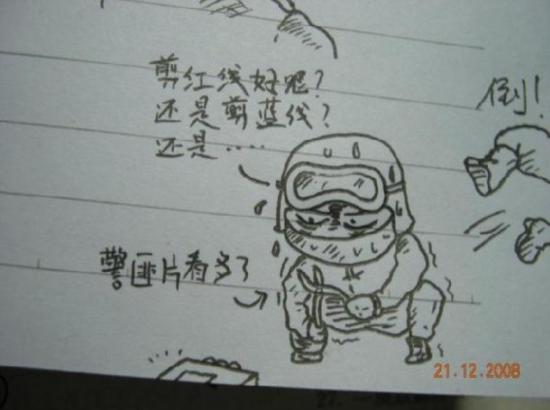 剪红线好呢?
还是剪蓝线?
还是....
倒!
警匪片看多了
21.12.2008